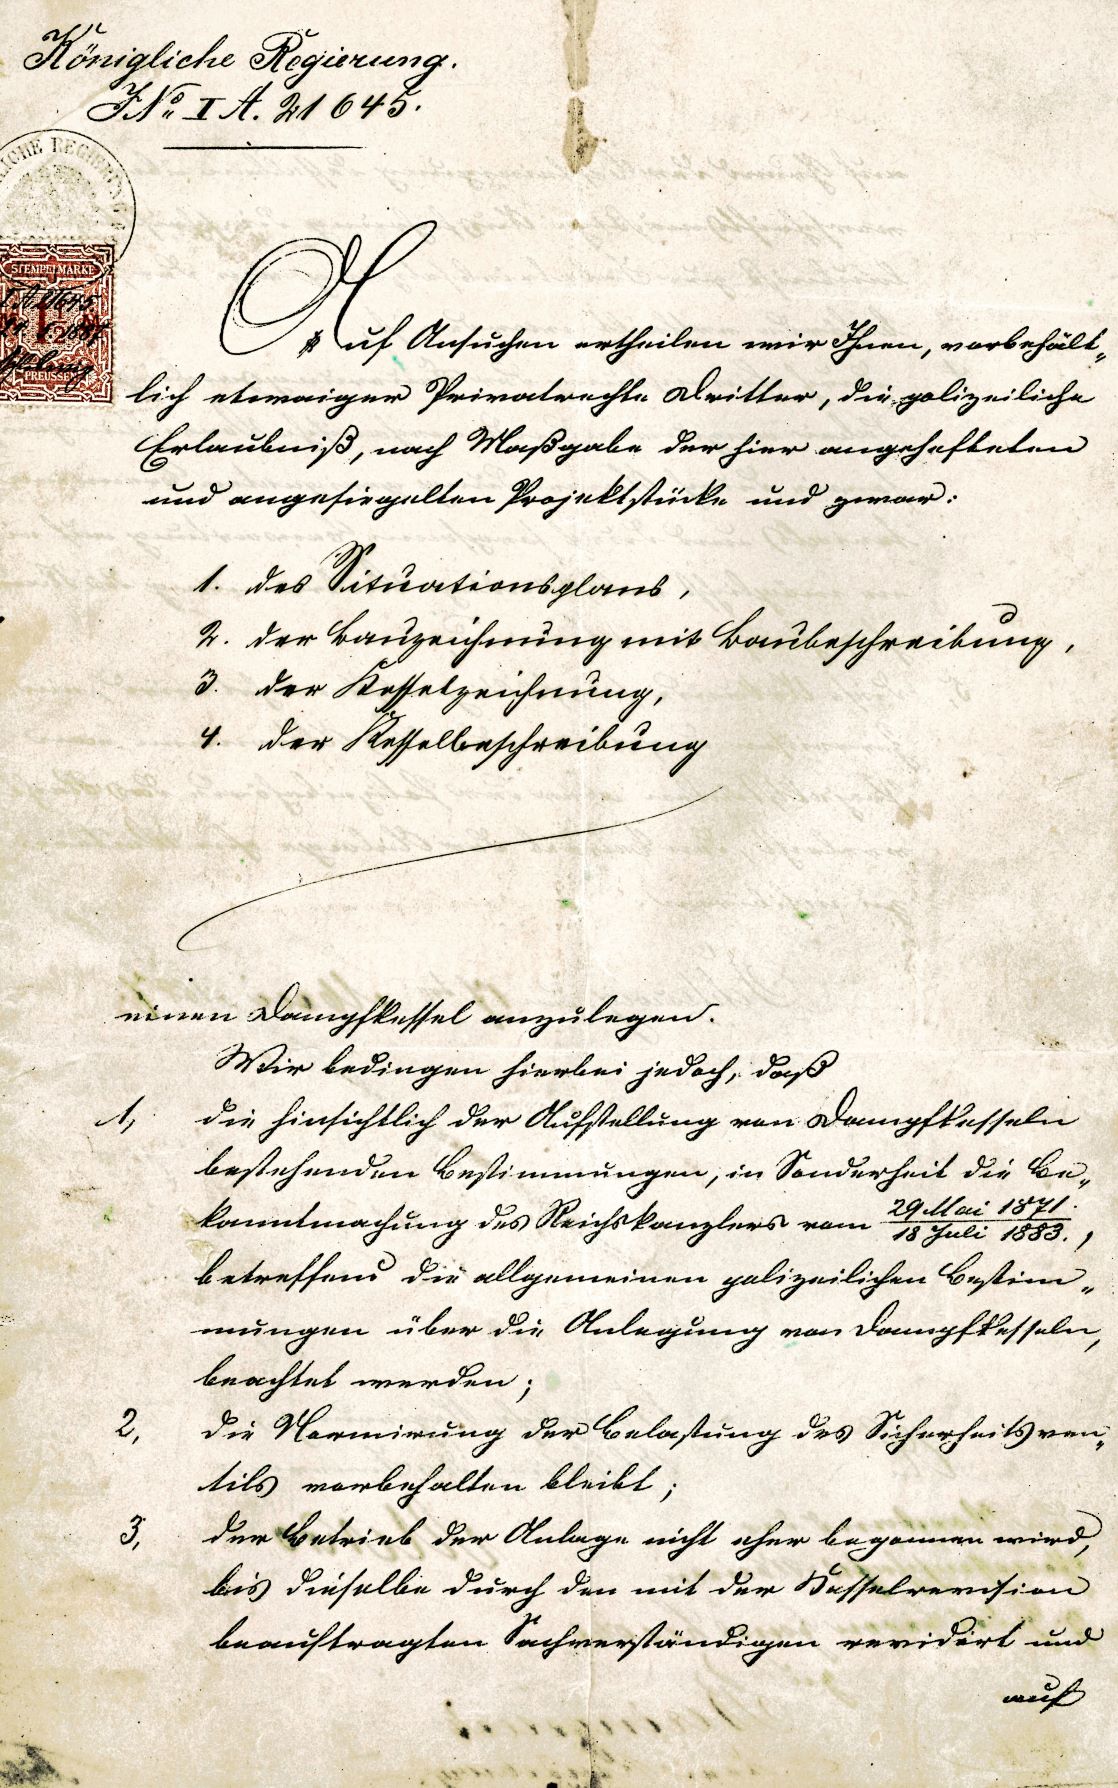 Königliche Regierung.
J No. I A. 21645.
LICHE REGIERUNG
STEMPELMARKE
I A 21645
1887
PREUSSEN
Auf Ansuchen ertheilen wir Ihnen, vorbehält-
lich etwaiger Privatrechte Dritter, die polizeiliche
Erlaubniß, nach Maßgabe der hier angehefteten
und angesiegelten Projektstücke und zwar:
1. des Situationsplans,
2. der Bauzeichnung mit Baubeschreibung,
3. der Kesselzeichnung,
4. der Kesselbeschreibung
einen Dampfkessel anzulegen.
Wir bedingen hierbei jedoch, daß
1, die hinsichtlich der Aufstellung von Dampfkesseln
bestehenden Bestimmungen, in Sonderheit die Be-
kanntmachung des Reichskanzlers vom 29 Mai 1871. / 18 Juli 1883.,
betreffend die allgemeinen polizeilichen Bestim-
mungen über die Anlegung von Dampfkesseln,
beachtet werden;
2, die Normirung der Belastung des Sicherheitsven-
tils vorbehalten bleibt;
3, der Betrieb der Anlage nicht eher begonnen wird,
bis dieselbe durch den mit der Kesselrevision
beauftragten Sachverständigen revidirt und
auf